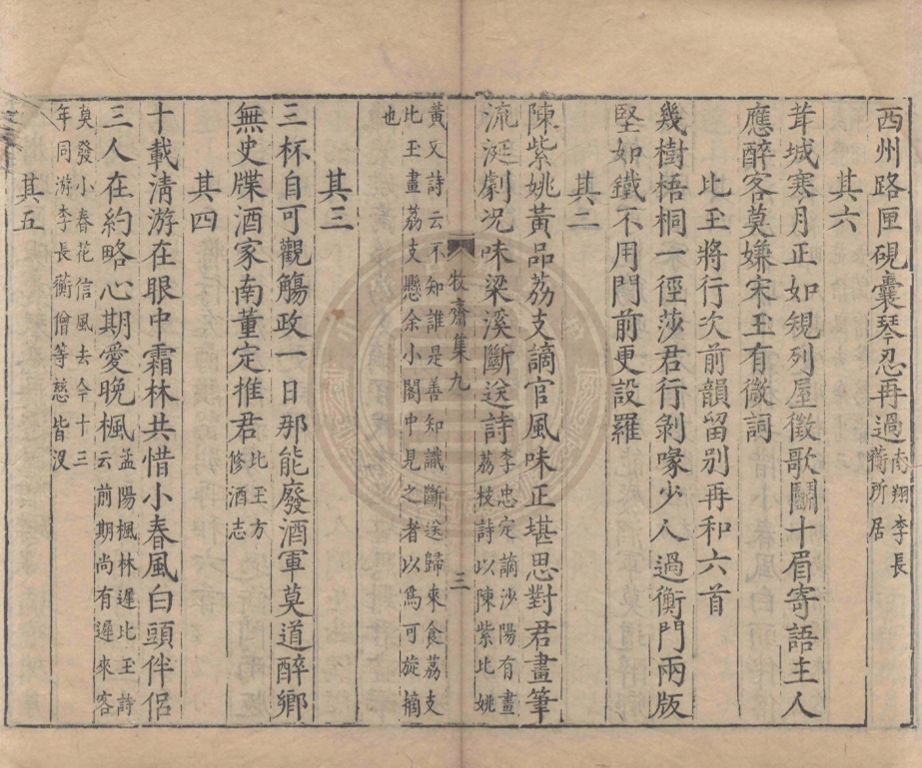 西州路匣硯囊琴忍再過南翔李長
蘅所居
其六
茸城寒月正如規列屋徵歌鬭十眉寄語主人
應醉客莫嫌宋玉有微詞
比玉將行次前韻留別再和六首
幾樹梧桐一徑莎君行剝啄少人過衡門兩版
堅如鐵不用門前更設羅
其二
陳紫姚黃品荔支謫官風味正堪思對君畫筆
流涎劇况味梁溪斷送詩李忠定謫沙陽有畫
荔枝詩以陳紫比姚
牧齋集九
三
黃又詩云不知誰是善知識斷送歸來食荔支
比玉畫荔支懸余小閣中見之者以爲可旋摘
也
其三
三杯自可觀觴政一日那能廢酒軍莫道醉鄉
無史牒酒家南董定推君比玉方
修酒志
其四
十載清游在眼中霜林共惜小春風白頭伴侶
三人在約略心期愛晚楓孟陽楓林遲比玉詩
云前期尚有遲來客
莫發小春花信風去今十三
年同游李長蘅僧等慈皆沒
其五